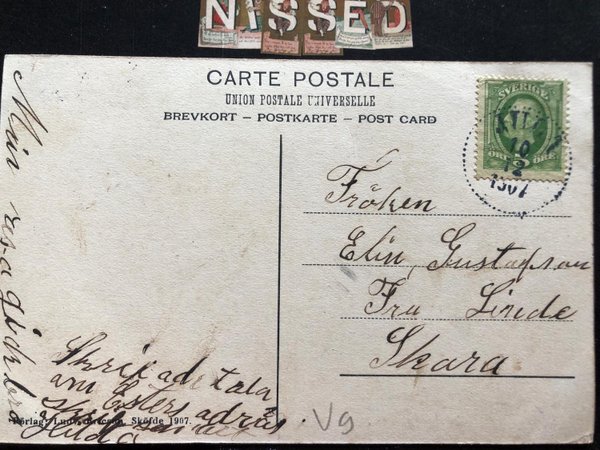 NISSED
CARTE POSTALE
UNION POSTALE UNIVERSELLE
BREVKORT – POSTKARTE – POST CARD
SVERIGE
5
ÖRE ÖRE
10
12
1907
Fröken
Elin Gustafson
Fru Linde
Skara
Min resa gick bra
Skrif
om Esters adräs
Hilda
Förlag: Skövde 1907.
Vg